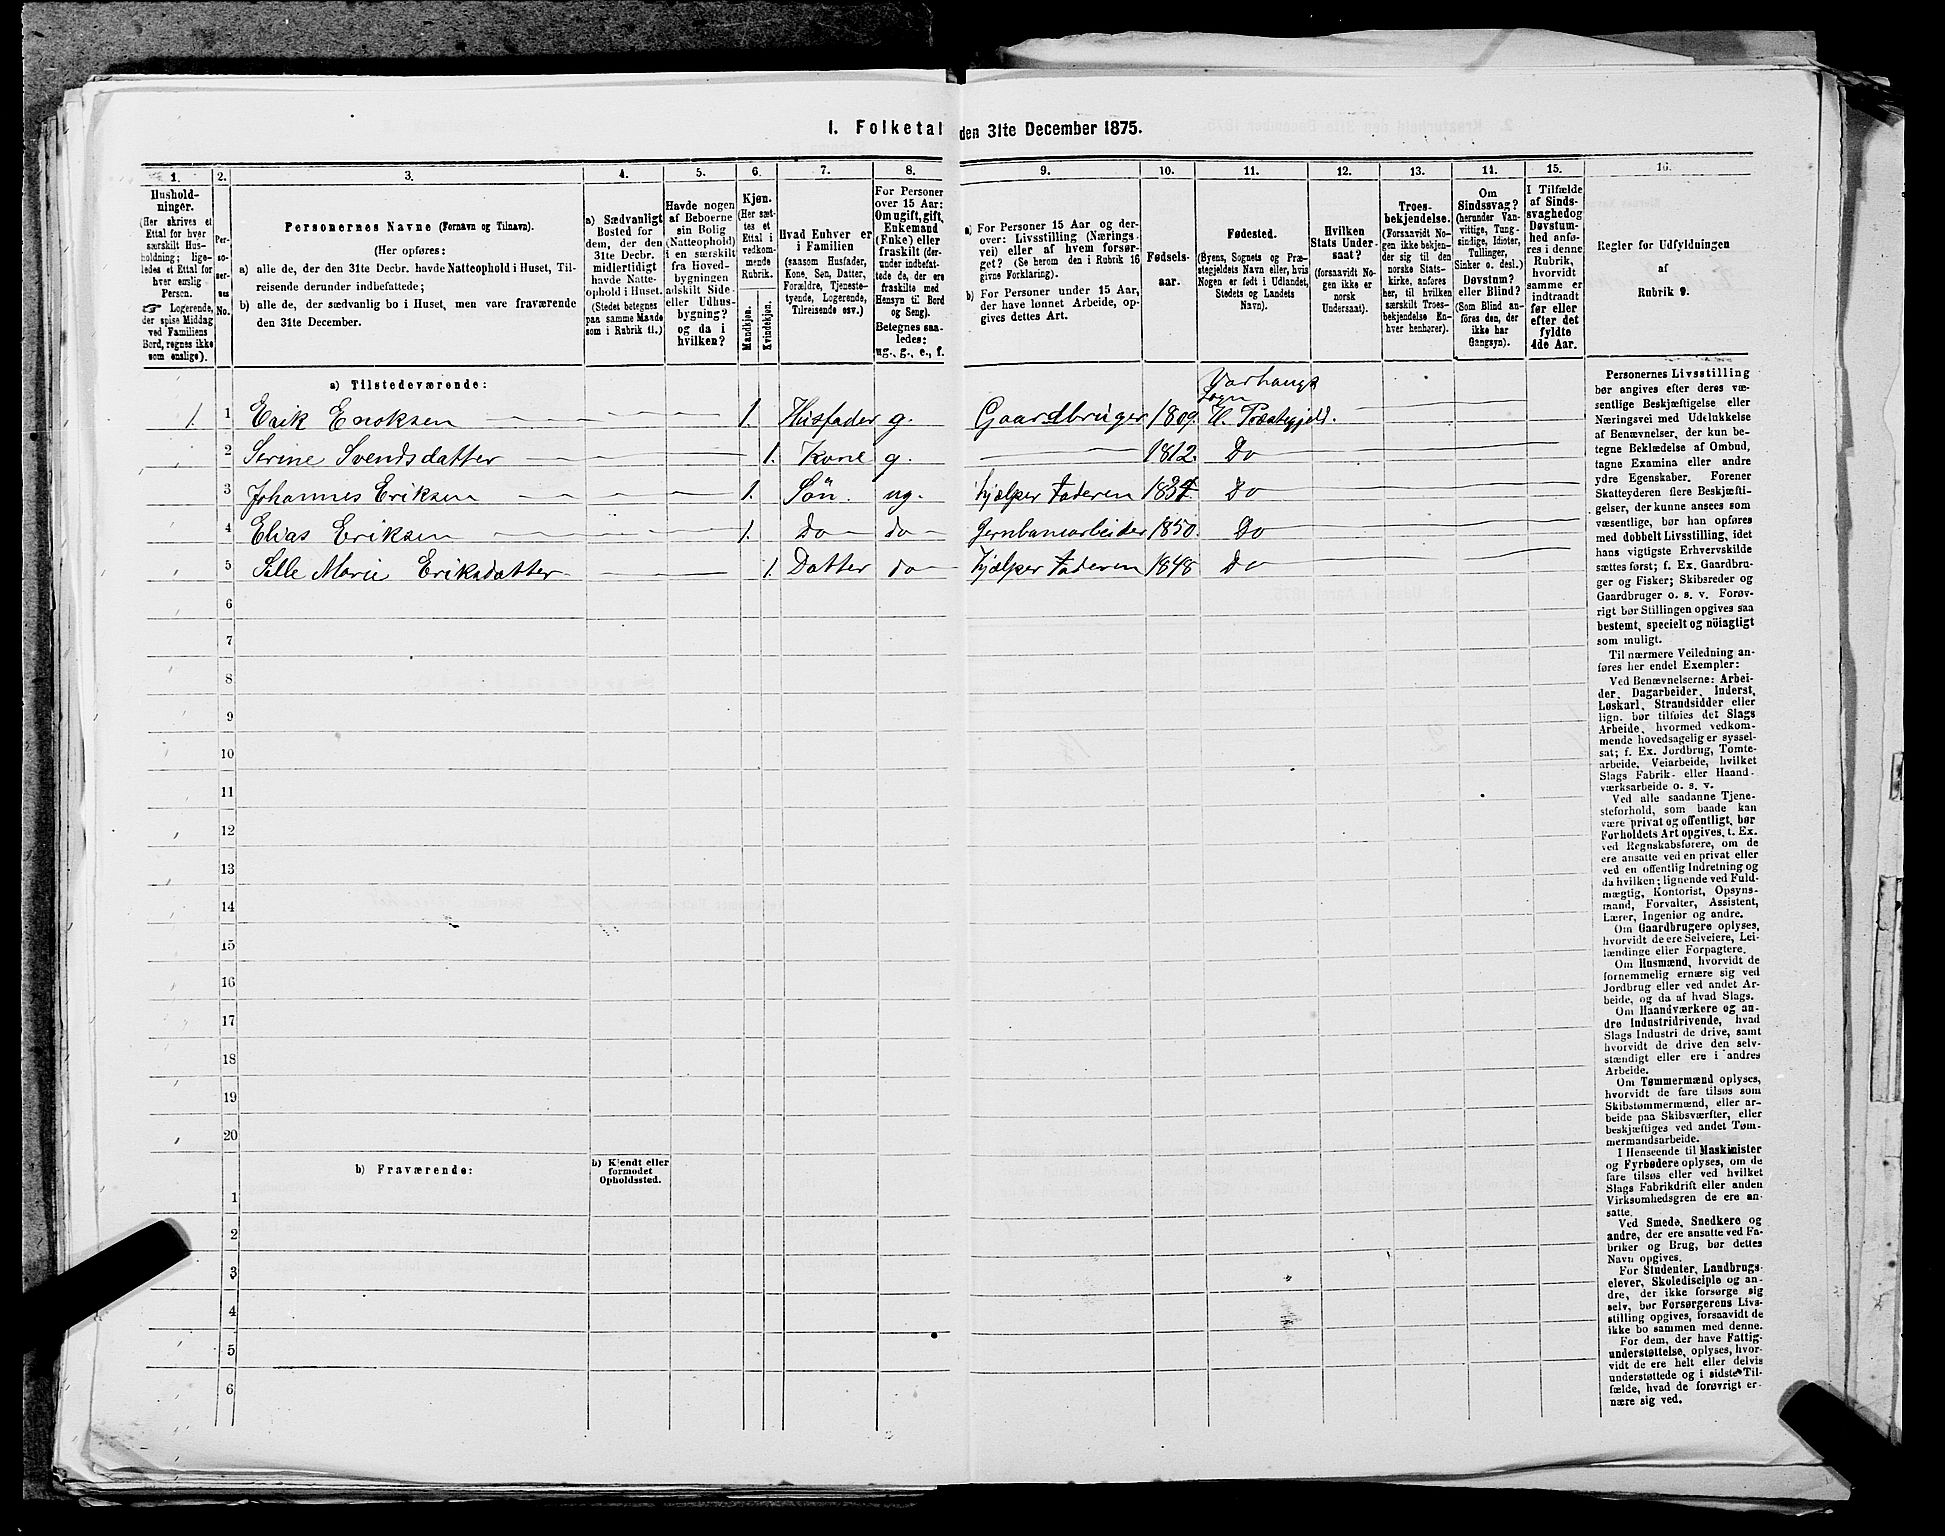 1. Folketal den 31te December 1875.
1.
2.
3.
4.
5.
6.
7.
8.
9.
10.
11.
12.
13.
11.
15.
16.
Hushold-
ninger.
(Her skrives et
Ettal for hver
særskilt Hus-
holdning; lige-
ledes et Ettal for
hver enslig
Person.
Logerende,
der spise Middag
ved Familiens
Bord, regnes ikke
som enslige).
Per-
so-
ner-
nes
No.
Personernes Navne (Fornavn og Tilnavn).
(Her opføres:
a) alle de, der den 31te Decbr. havde Natteophold i Huset, Til-
reisende derunder indbefattede;
b) alle de, der sædvanlig bo i Huset, men vare fraværende
den 31te December.
a) Sædvanligt
Bosted for
dem, der den
31te Decbr.
midlertidigt
havde Natte-
ophold i Huset.
(Stedet betegnes
paa samme Maade
som i Rubrik 11.)
Havde nogen
af Beboerne
sin Bolig
(Natteophold)
i en særskilt
fra Hoved-
bygningen
adskilt Side-
eller Udhus-
bygning?
og da i
hvilken?
Kjøn.
(Her sæt-
tes et
Ettal i
vedkom-
mende
Rubrik.
Mandkjøn.
Kvindekjøn.
Hvad Enhver er
i Familien
(saasom Husfader,
Kone, Søn, Datter,
Forældre, Tjeneste-
tyende, Logerende,
Tilreisende osv.)
For Personer
over 15 Aar:
Om ugift, gift,
Enkemand
(Enke) eller
fraskilt (der-
under indbefat-
tede de, der ere
fraskilte med
Hensyn til Bord
og Seng).
Betegnes saa-
ledes:
ug., g., e., f.
a) For Personer 15 Aar og der-
over: Livsstilling (Nærings-
vei) eller af hvem forsør-
get? (Se herom den i Rubrik 16
givne Forklaring).
b) For Personer under 15 Aar,
der have lønnet Arbeide, op-
gives dettes Art.
Fødsels-
aar.
Fødested.
(Byens, Sognets og Præ-
stegjeldets Navn eller, hvis
Nogen er født i Udlandet,
Stedets og Landets
Navn).
Hvilken
Stats Under-
saat?
(forsaavidt No-
gen ikke er
norsk
Undersaat).
Troes-
bekjendelse.
(Forsaavidt No-
gen ikke bekjen-
der sig til den
norske Stats-
kirke, anføres
her, til hvilken
særskilt Troes-
bekjendelse En-
hver henhører).
Om
Sindssvag?
(herunder Van-
vittige, Tung-
sindige, Idioter,
Tullinger,
Sinker o. desl.)
Døvstum?
eller Blind?
(Som Blind an-
føres den, der
ikke har
Gangsyn).
I Tilfælde
af Sinds-
svaghed og
Døvstum-
hed anfø-
res i denne
Rubrik,
hvorvidt
samme er
indtraadt
før eller
efter det
fyldte
4de Aar.
Regler for Udfyldningen
af
Rubrik 9.
a) Tilstedeværende:
Varhaugs
Sogn
1. 1 Erik Enoksen 1. Husfader g. Gaardbruger 1809. H. Præstegjeld.
2 Serine Svendsdatter 1. Kone g. 1812. Do
3 Johannes Eriksen 1. Søn ug. hjælper Faderen Do
4 Elias Eriksen 1. Do do Jernbanearbeider 1850. Do
5 Sille Marie Eriksdatter 1. Datter do hjælper Faderen 1848 Do
6
7
8
9
10
11
12
13
14
15
16
17
18
19
20
b) Fraværende:
b) Kjendt eller
formodet
Opholdssted.
1
2
3
4
5
6
Personernes Livsstilling
bør angives efter deres væ-
sentlige Beskjæftigelse eller
Næringsvei med Udelukkelse
af Benævnelser, der kun be-
tegne Beklædelse af Ombud,
tagne Examina eller andre
ydre Egenskaber. Forener
Skatteyderen flere Beskjæfti-
gelser, der kunne ansees som
væsentlige, bør han opføres
med dobbelt Livsstilling, idet
hans vigtigste Erhvervskilde
sættes først; f. Ex. Gaardbru-
ger og Fisker; Skibsreder og
Gaardbruger o. s. v. Forøv-
rigt bør Stillingen opgives saa
bestemt, specielt og nöiagtigt
som muligt.
Til nærmere Veiledning an-
føres her endel Exempler:
Ved Benævnelserne: Arbei-
der, Dagarbeider, Inderst,
Løskarl, Strandsidder eller
lign. bør tilføies det Slags
Arbeide, hvormed vedkom-
mende hovedsagelig er syssel-
sat; f. Ex. Jordbrug, Tomte-
arbeide, Veiarbeide, hvilket
Slags Fabrik- eller Haand-
værksarbeide o. s. v.
Ved alle saadanne Tjene-
steforhold, som baade kan
være privat og offentligt, bør
Forholdets Art opgives, t. Ex.
ved Regnskabsførere, om de
ere ansatte ved en privat eller
ved en offentlig Indretning og
da hvilken; lignende ved Fuld-
mægtig, Kontorist, Opsyns-
mand, Forvalter, Assistent,
Lærer, Ingeniør og andre.
Om Gaardbrugere oplyses,
hvorvidt de ere Selveiere, Lei-
lændinge eller Forpagtere.
Om Husmænd, hvorvidt de
fornemmelig ernære sig ved
Jordbrug eller ved andet Ar-
beide, og da af hvad Slags.
Om Haandværkere og an-
dre Industridrivende, hvad
Slags Industri de drive, samt
hvorvidt de drive den selv-
stændigt eller ere i andres
Arbeide.
Om Tømmermænd oplyses,
hvorvidt de fare tilsøs som
Skibstømmermænd, eller ar-
beide paa Skibsværfter, eller
beskjæftiges ved andet Tøm-
mermandsarbeide.
I Henseende til Maskinister
og Fyrbødere oplyses, om de
fare tilsøs eller ved hvilket
Slags Fabrikdrift eller anden
Virksomhedsgren de ere an-
satte.
Ved Smede, Snedkere og
andre, der ere ansatte ved Fa-
briker og Brug, bør dettes
Navn opgives.
For Studenter, Landbrugs-
elever, Skoledisciple og an-
dre, der ikke forsørge sig
selv, bør Forsørgerens Livs-
stilling opgives, forsaavidt de
ikke bo sammen med denne.
For dem, der have Fattig-
understøttelse, oplyses, hvor-
vidt de ere helt eller delvis
understøttede og i sidste Til-
fælde, hvad de forøvrigt er-
nære sig ved.